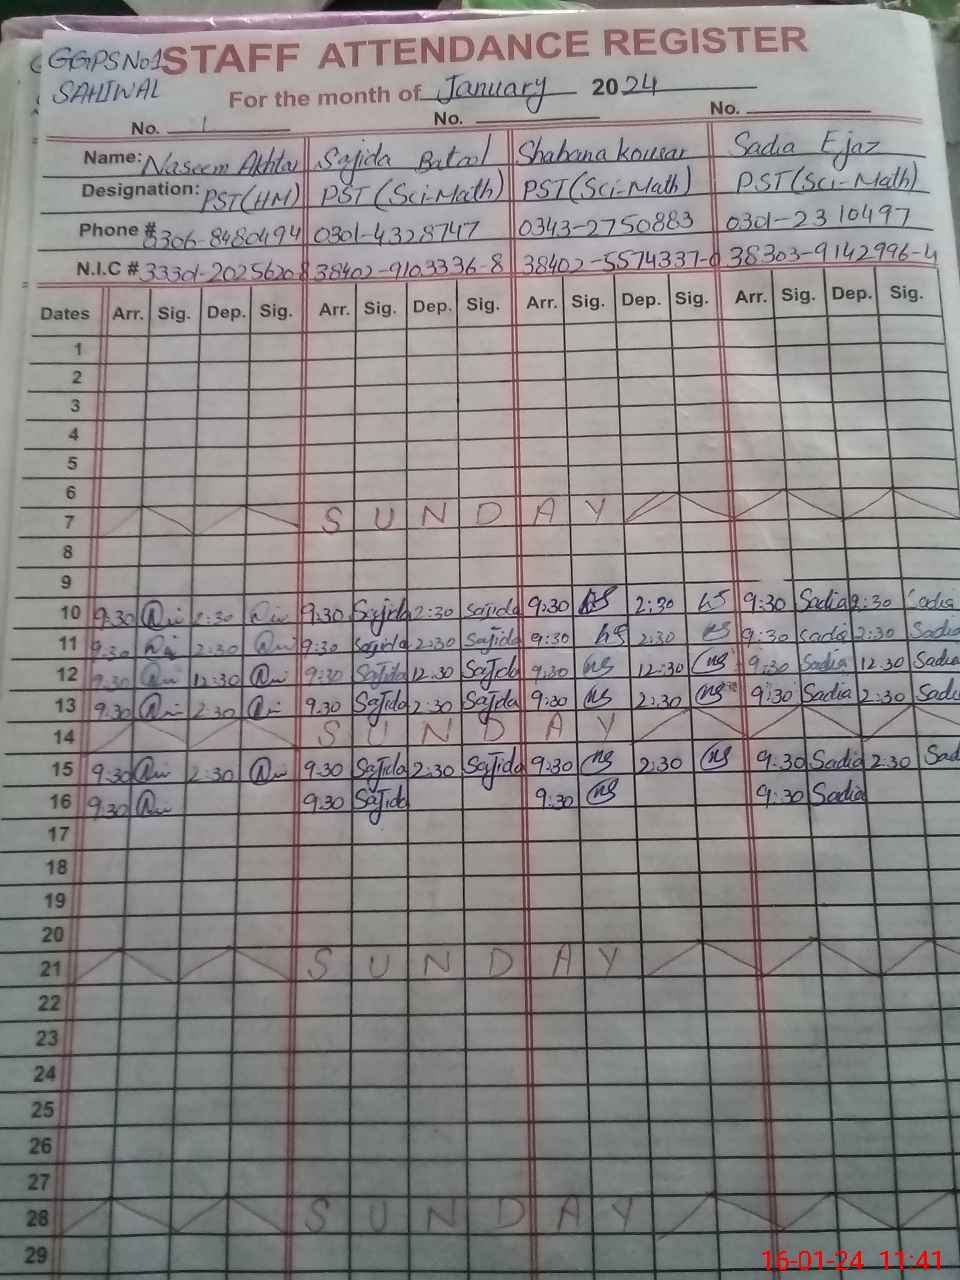 GGPSNo1 STAFF ATTENDANCE REGISTER
SAHIWAL For the month of January 2024
No. 1 No. No.
Name: Naseem Akhtar Sajida Batool Shabana kousar Sadia Ejaz
Designation: PST(HM) PST(Sci-Math) PST(Sci-Math) PST(Sci-Math)
Phone # 0306-8480494 0301-4328747 0343-2750883 0301-2310497
N.I.C # 33301-2025620 38402-9103336-8 38402-5574337-0 38303-9142996-4
Dates Arr. Sig. Dep. Sig. Arr. Sig. Dep. Sig. Arr. Sig. Dep. Sig. Arr. Sig. Dep. Sig.
1
2
3
4
5
6
7 S U N D A Y
8
9
10 9:30 2:30 9:30 Sajida 2:30 Sajida 9:30 2:30 9:30 Sadia 2:30 Sadia
11 9:30 2:30 9:30 Sajida 2:30 Sajida 9:30 2:30 9:30 Sadia 2:30 Sadia
12 9:30 12:30 9:30 Sajida 12:30 Sajida 9:30 12:30 9:30 Sadia 12:30 Sadia
13 9:30 2:30 9:30 Sajida 2:30 Sajida 9:30 2:30 9:30 Sadia 2:30 Sadi
14 S U N D A Y
15 9:30 2:30 9:30 Sajida 2:30 Sajida 9:30 2:30 9:30 Sadia 2:30 Sad
16 9:30 9:30 Sajida 9:30 9:30 Sadia
17
18
19
20
21 S U N D A Y
22
23
24
25
26
27
28 S U N D A Y
29
16-01-24 11:41